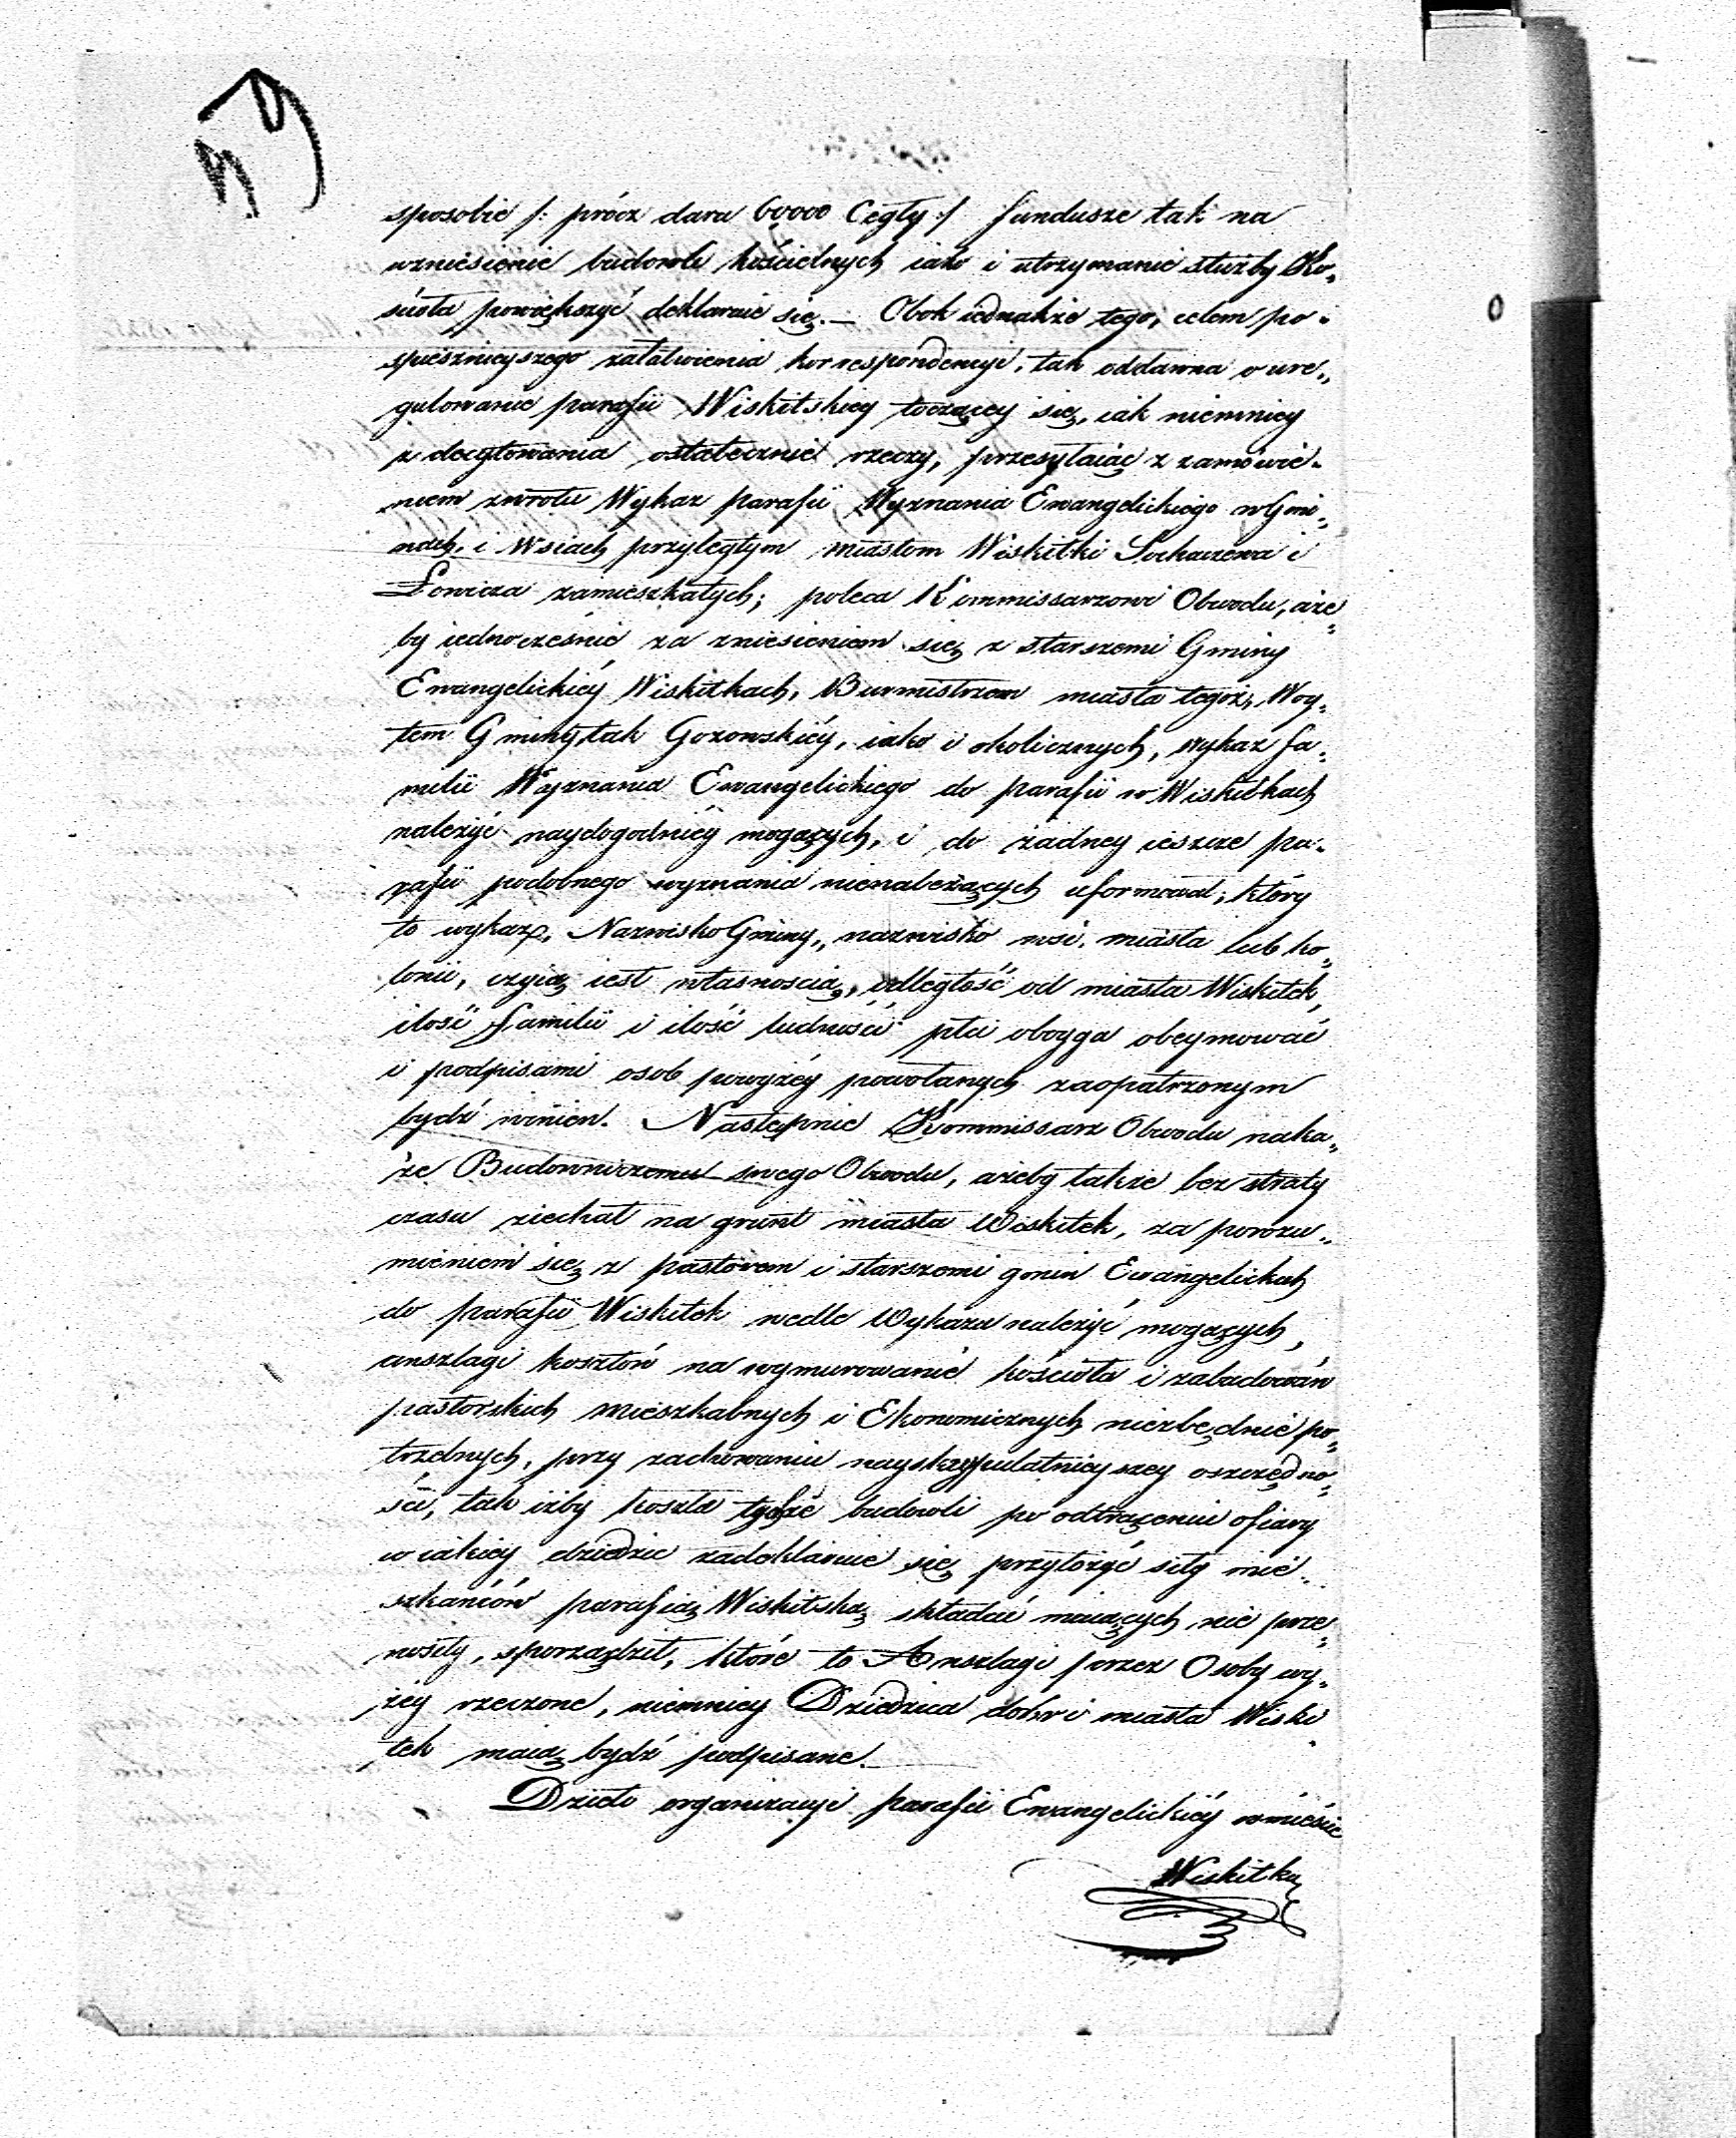 sposobie /: prócz daru 60000 Cegły :/ fundusze tak na
wzniesienie budowli kościelnych iako i utrzymanie służby Ko„
ścioła powiększyć deklaruie się. — Obok iednakże tego, celem po„
spiesznieyszego załatwienia korrespondencyi, tak oddawna o ure„
gulowanie parafii Wiskitskiey toczącey się, iak niemniey
zdecydowania ostatecznie rzeczy, przesyłaiąc z zamówie„
niem zwrotu Wykaz parafii Wyznania Ewangelickiego w Gmi„
nach, i Wsiach przyległym miastom Wiskitki Sochaczewa i
Łowicza zamieszkałych; poleca Kommissarzowi Obwodu, aże„
by iednocześnie za zniesieniem się z starszemi Gminy
Ewangelickiéy Wiskitkach, Burmistrzem miasta tegoż, Woy„
tem Gminy tak Guzowskiéy, iako i okolicznych, wykaz fa„
milii Wyznania Ewangelickiego do parafii w Wiskitkach
należyć naydogodniéy mogących, i do żadney ieszcze pa„
rafii podobnego wyznania nienależących uformował; który
to wykaz, Nazwisko Gminy, nazwisko wsi, miasta lub ko„
lonii, czyią iest własnoscią, odległość od miasta Wiskitek,
ilość familii i ilość ludności płci oboyga obeymować
i podpisami osob powyżéy powołanych zaopatrzonym
bydź winien. Następnie Kommissarz Obwodu naka„
że Budowniczemu swego Obwodu, ażeby także bez straty
czasu ziechał na grunt miasta Wiskitek, za porozu„
mieniem się z pastorem i starszemi gmin Ewangelickich
do parafii Wiskitek wedle Wykazu należyć mogących,
anszlagi kosztów na wymurowanie kościoła i zabudowań
pastorskich mieszkalnych i Ekonomicznych niezbędnie po„
trzebnych, przy zachowaniu nayskrupulatnieyszey oszczędno„
ści, tak iżby koszta tychże budowli po odtrąceniu ofiary
w iakiey dziedzic zadeklaruie się przyłożyć siły mie„
szkańców parafią Wiskitską składać maiących nie prze„
nosiły, sporządził, które to Anszlagi przez Osoby wy„
żey rzeczone, niemniey Dziedzica dóbr i miasta Wiski„
tek maią bydź podpisane.
Dzieło organizacyi parafii Ewangelickiéy w mieście
Wiskitka